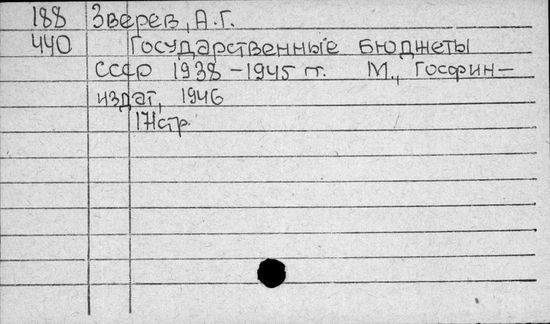 188 Зверев, А.Г.
440 Государственные бюджеты
СССР 1938-1945 гг. М., Госфин-
издат, 1946
171стр.